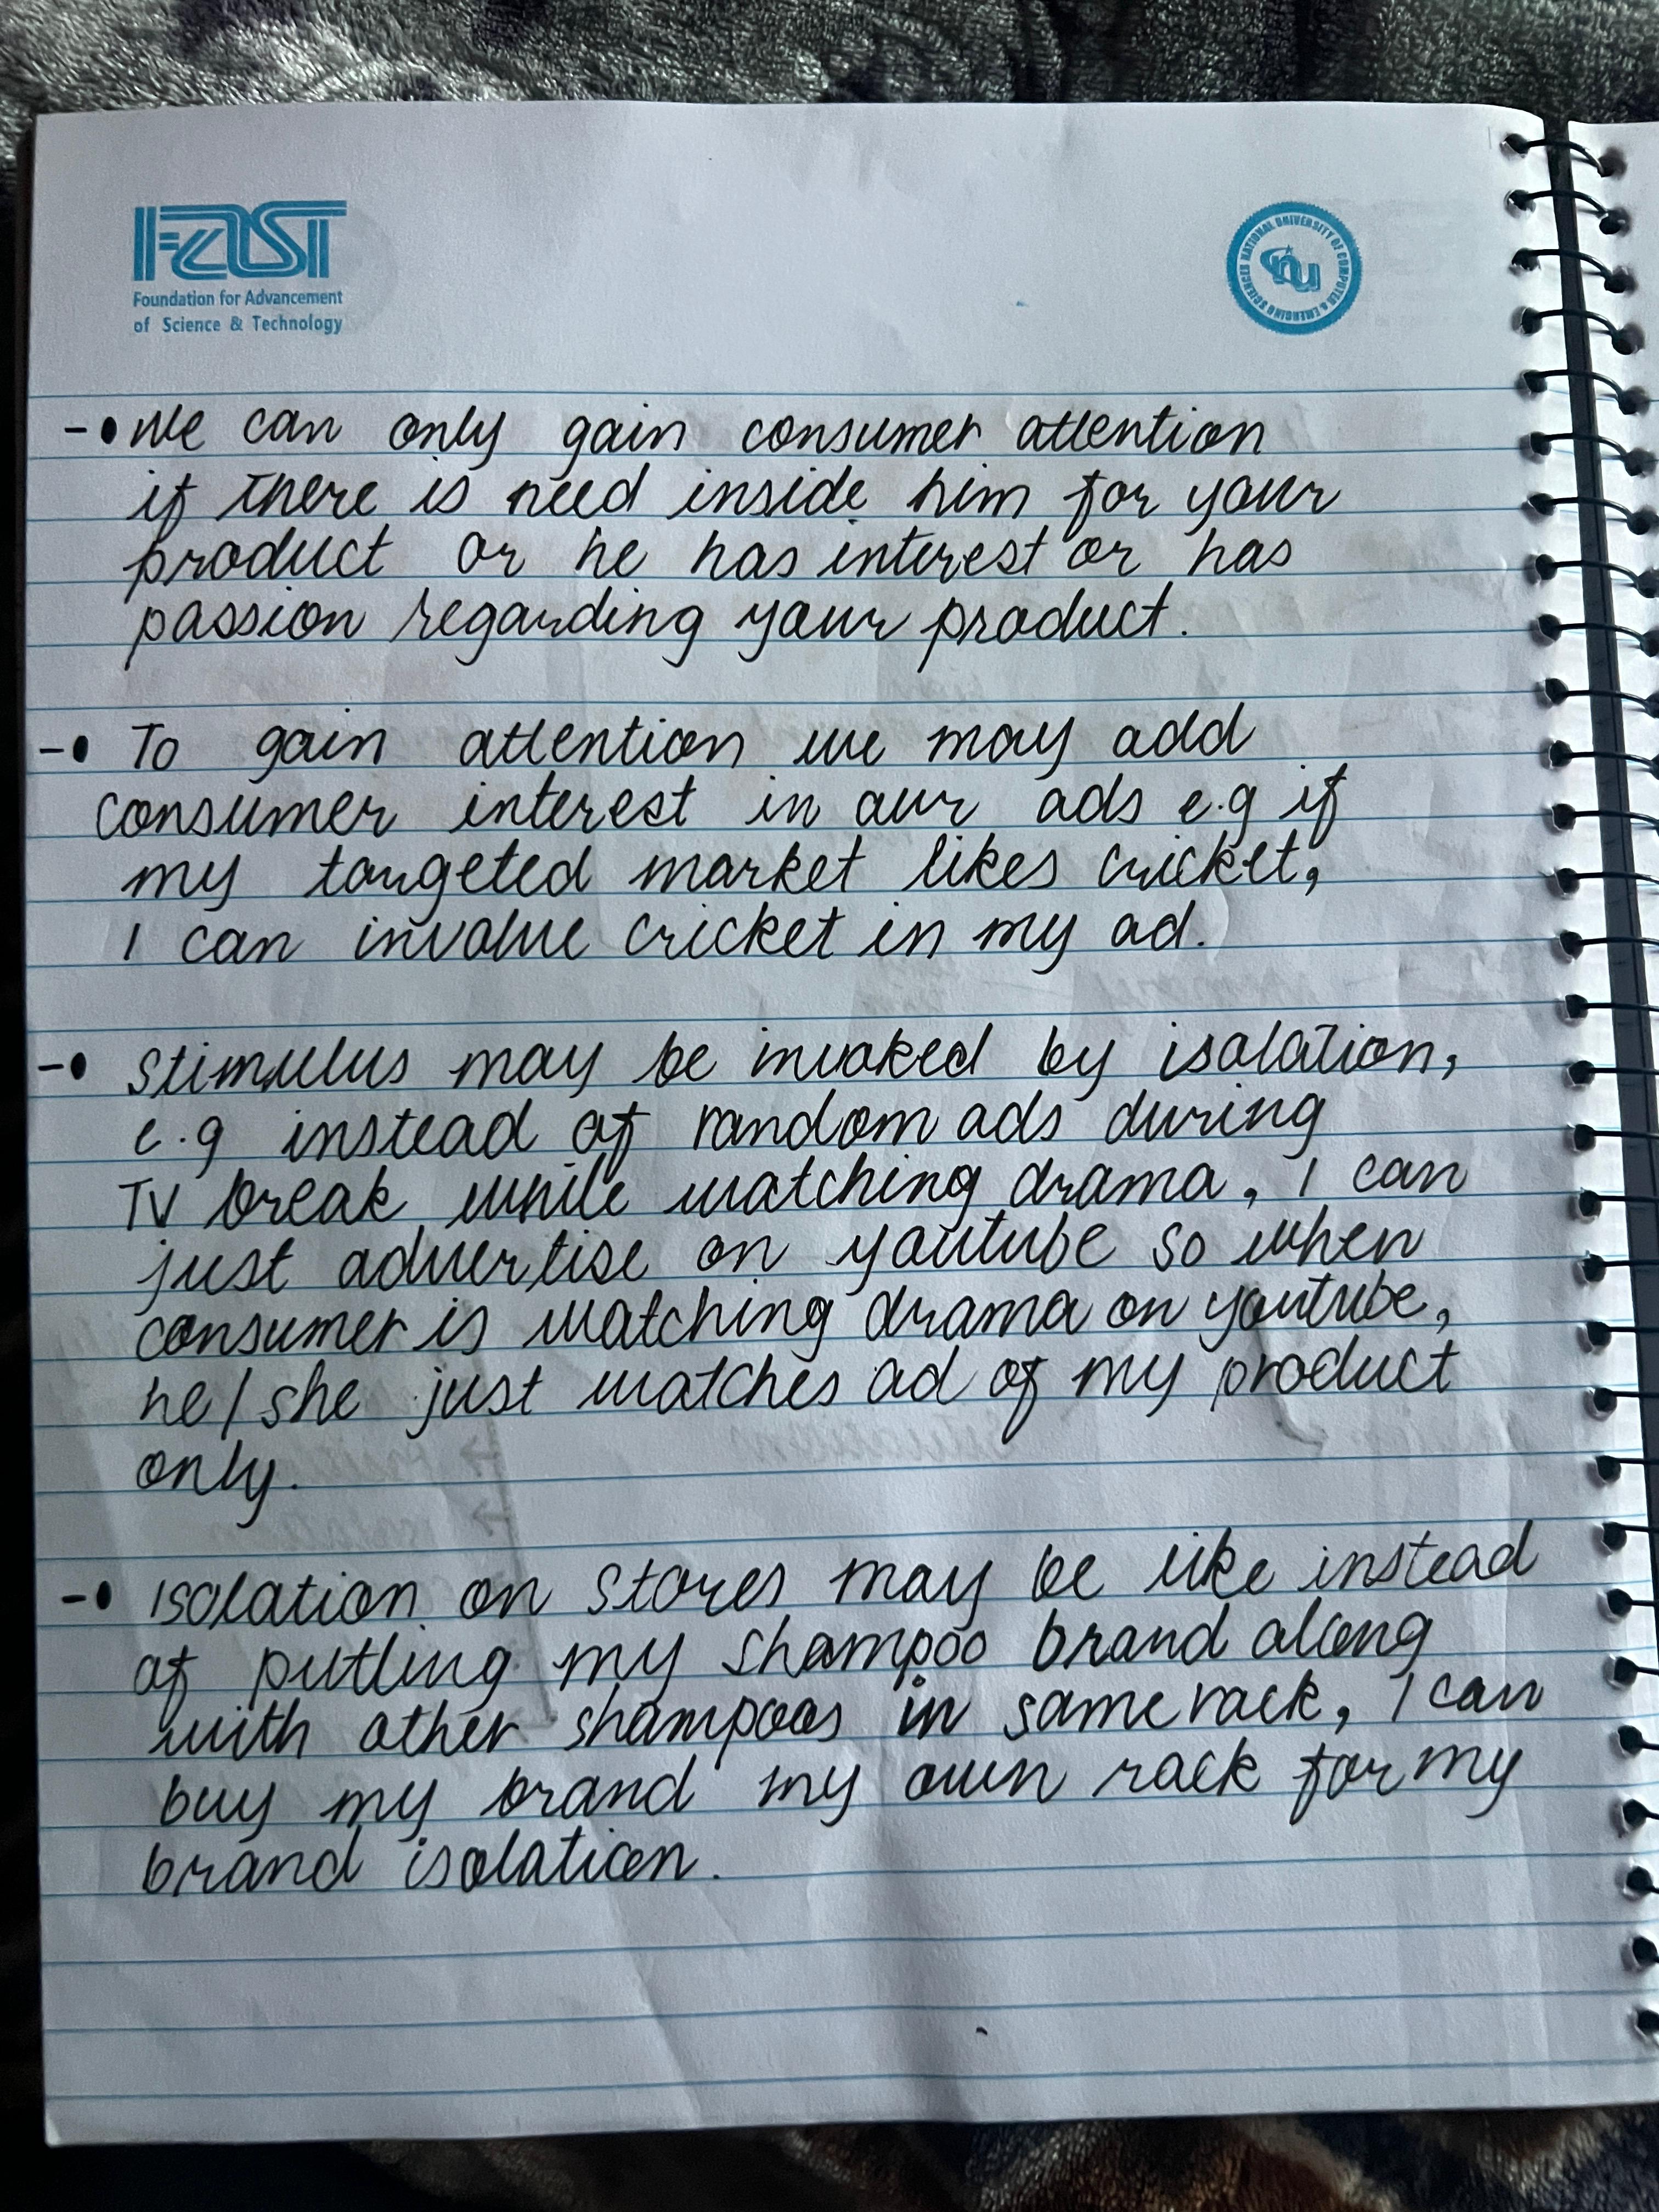 FAST
Foundation for Advancement
of Science & Technology
NATIONAL UNIVERSITY OF COMPUTER & EMERGING SCIENCES
nu
-• We can only gain consumer attention
if there is need inside him for your
product or he has interest or has
passion regarding your product.
-• To gain attention we may add
consumer interest in our ads e.g if
my targeted market likes cricket,
I can involve cricket in my ad.
-• Stimulus may be invoked by isolation,
e.g instead of random ads during
TV break while watching drama, I can
just advertise on youtube so when
consumer is watching drama on youtube,
he/she just watches ad of my product
only.
-• Isolation on stores may be like instead
of putting my shampoo brand along
with other shampoos in same rack, I can
buy my brand my own rack for my
brand isolation.